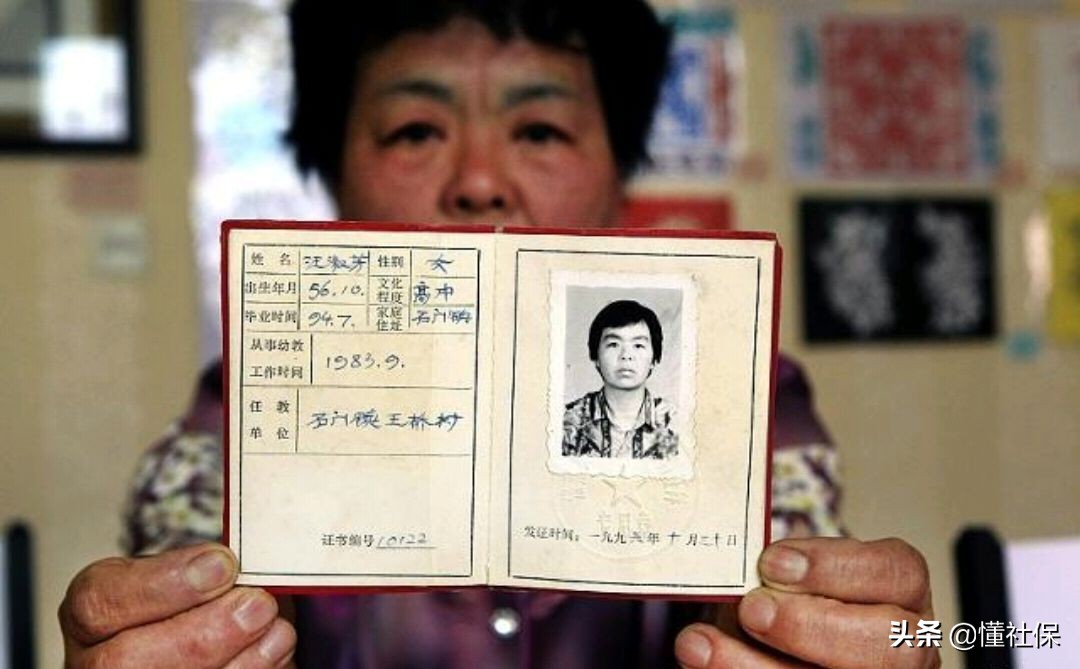 姓 名 汪淑芳 性别 女
出生年月 56.10. 文化程度 高中
毕业时间 94.7. 家庭住址 石门镇
从事幼教工作时间 1983.9.
任教单位 石门镇王桥村
证书编号 10122
发证时间：一九九六年十月三十日
头条 @懂社保